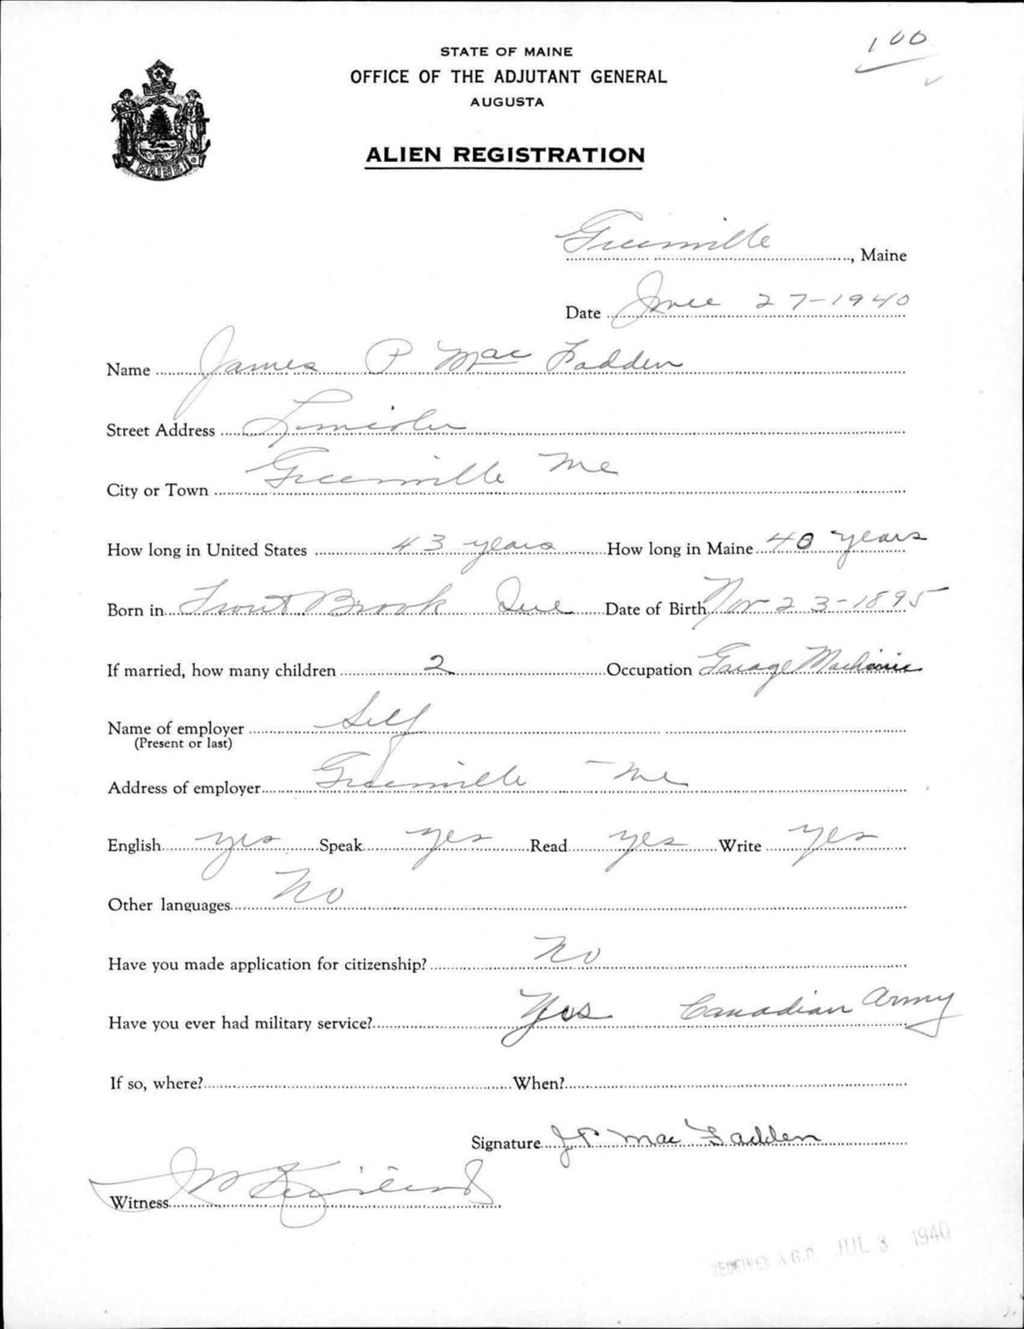 100
STATE OF MAINE
OFFICE OF THE ADJUTANT GENERAL
AUGUSTA
ALIEN REGISTRATION
MAINE
Greenville, Maine
Date June 27-1940
Name James P Mac Fadden
Street Address Lincoln
City or Town Greenville Me
How long in United States 43 years How long in Maine 40 years
Born in Trout Brook Que Date of Birth Nov 23-1895
If married, how many children 2 Occupation Garage Machinic
Name of employer Self
(Present or last)
Address of employer Greenville - Me
English yes Speak yes Read yes Write yes
Other languages No
Have you made application for citizenship? No
Have you ever had military service? Yes Canadian Army
If so, where? When?
Signature J P Mac Fadden
Witness
RECEIVED A.G.O. JUL 3 1940